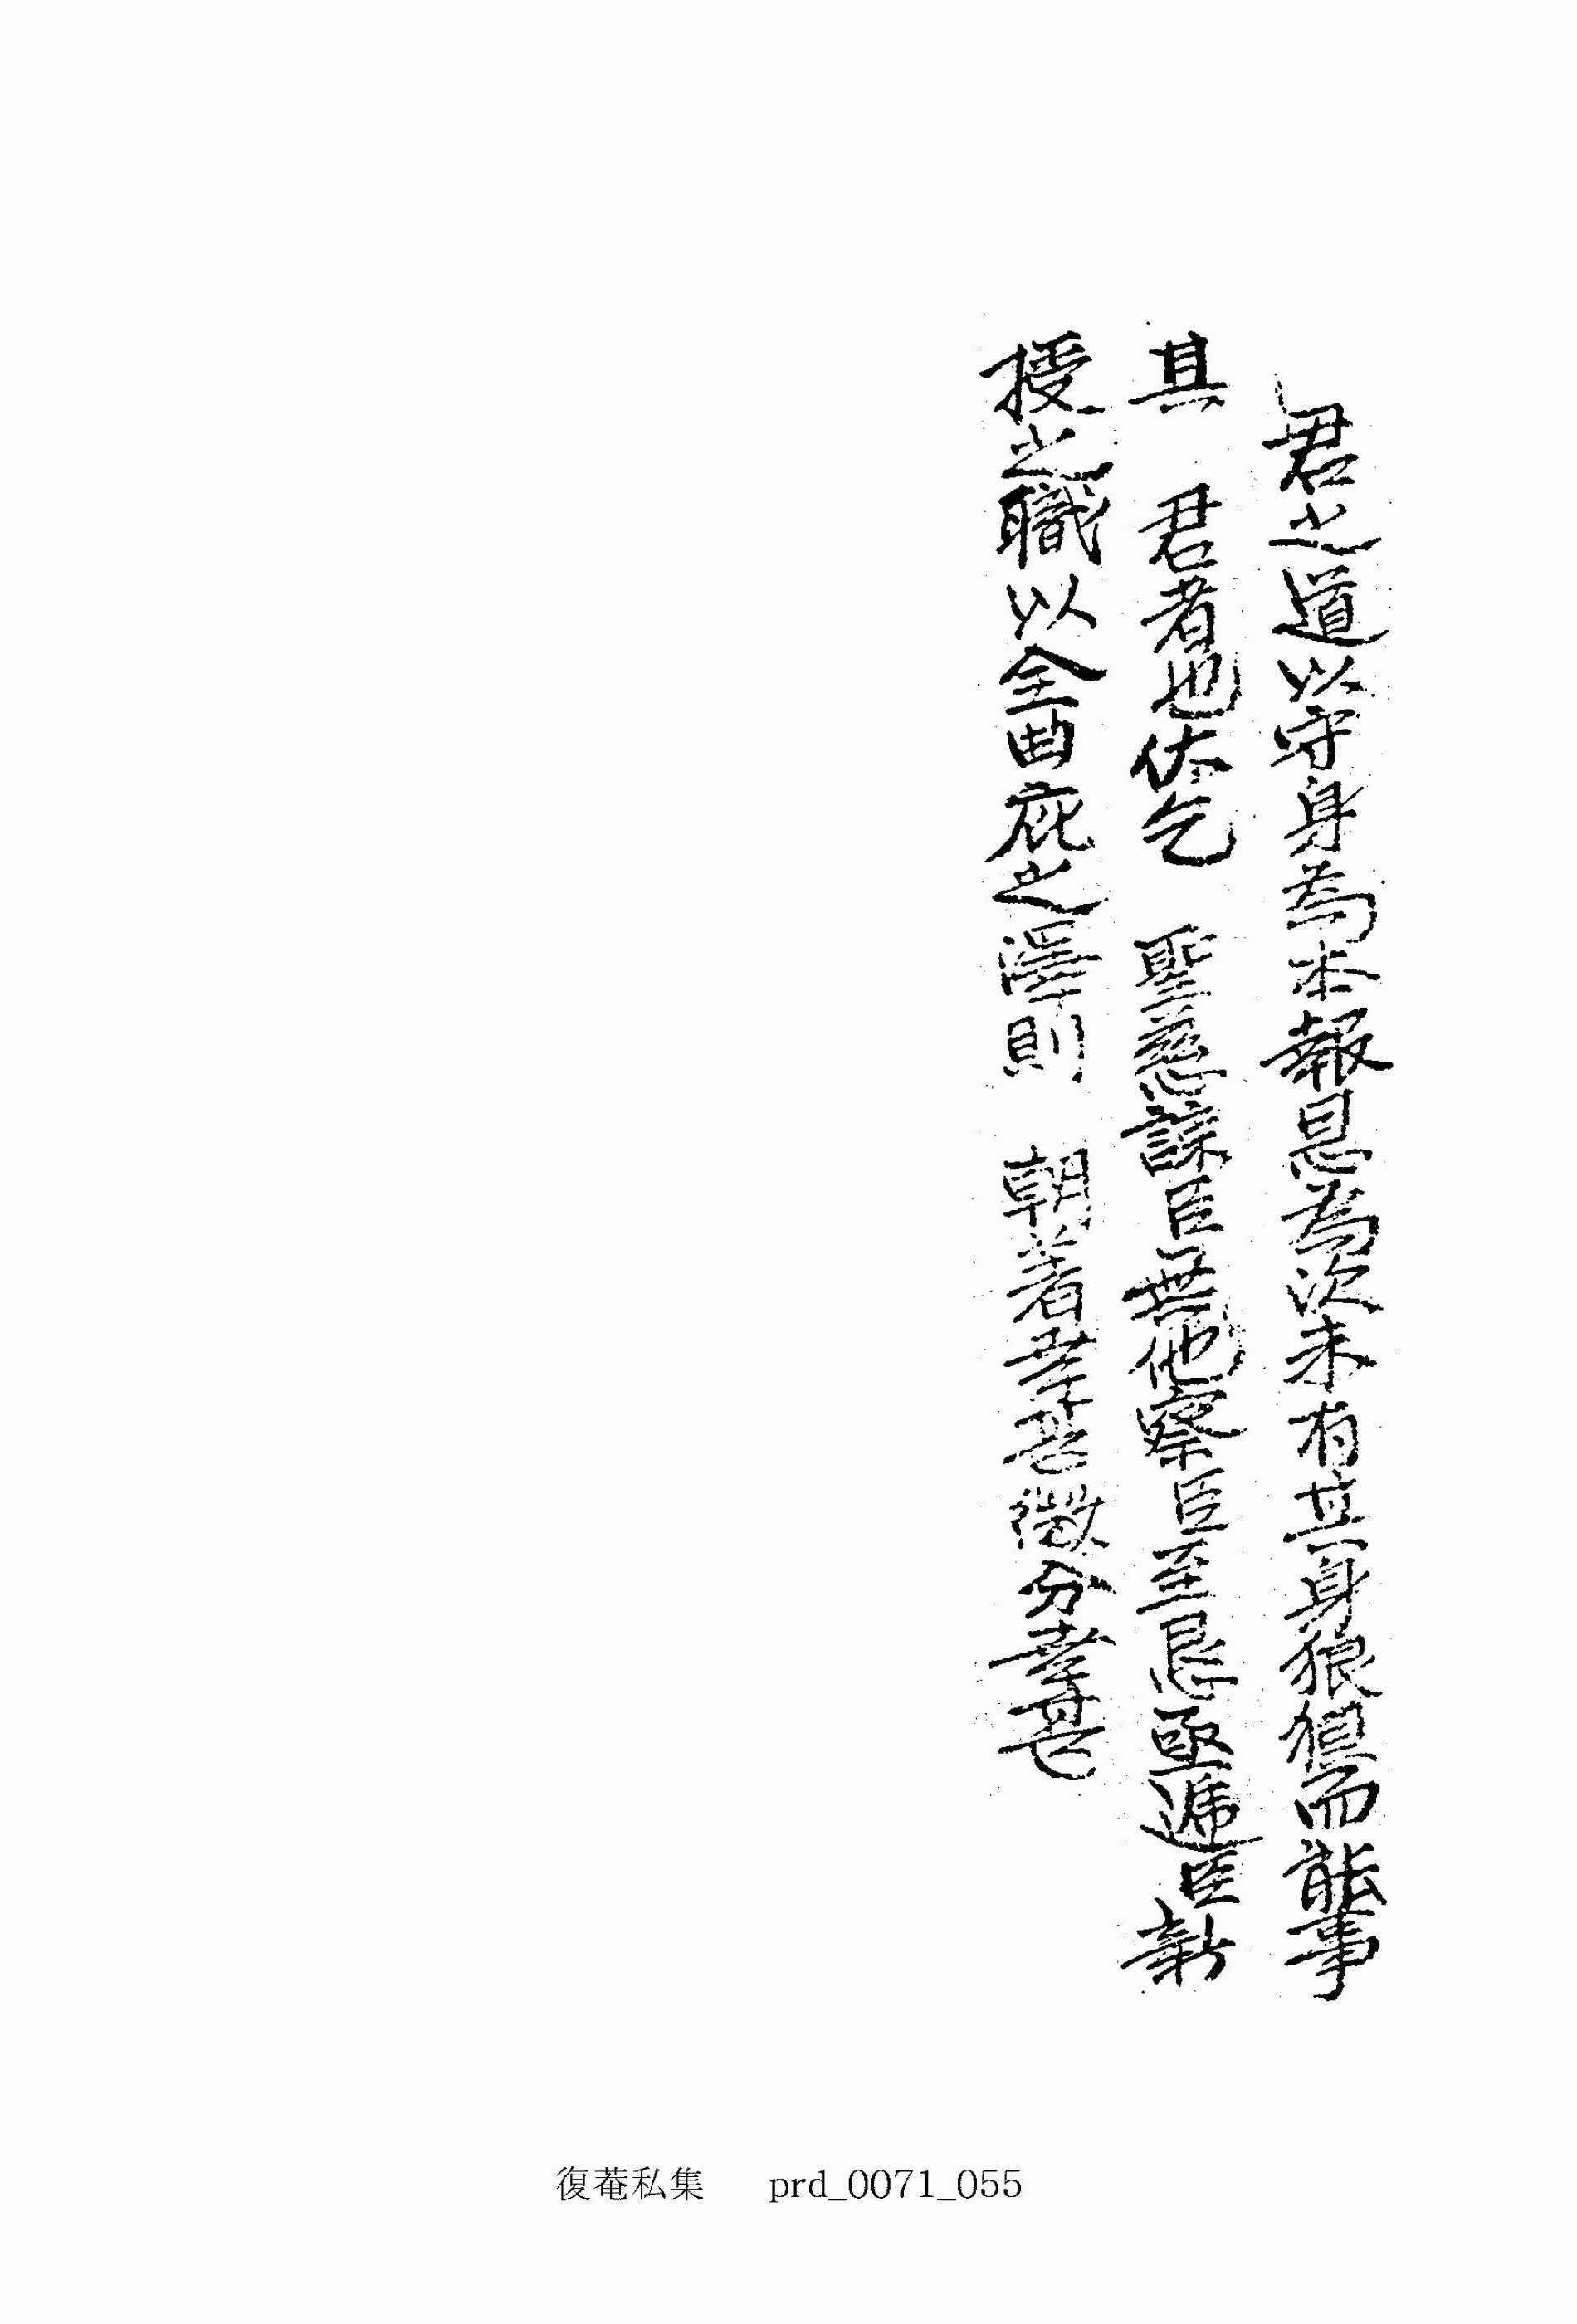 君之道以守身為本報恩為次未有其身狼狽而能事
其 君者也伏乞 聖慈諒臣無他察臣至恳亟遞臣新
授之職以全曲庇之澤則 朝著幸甚微分幸甚
復菴私集 prd_0071_055